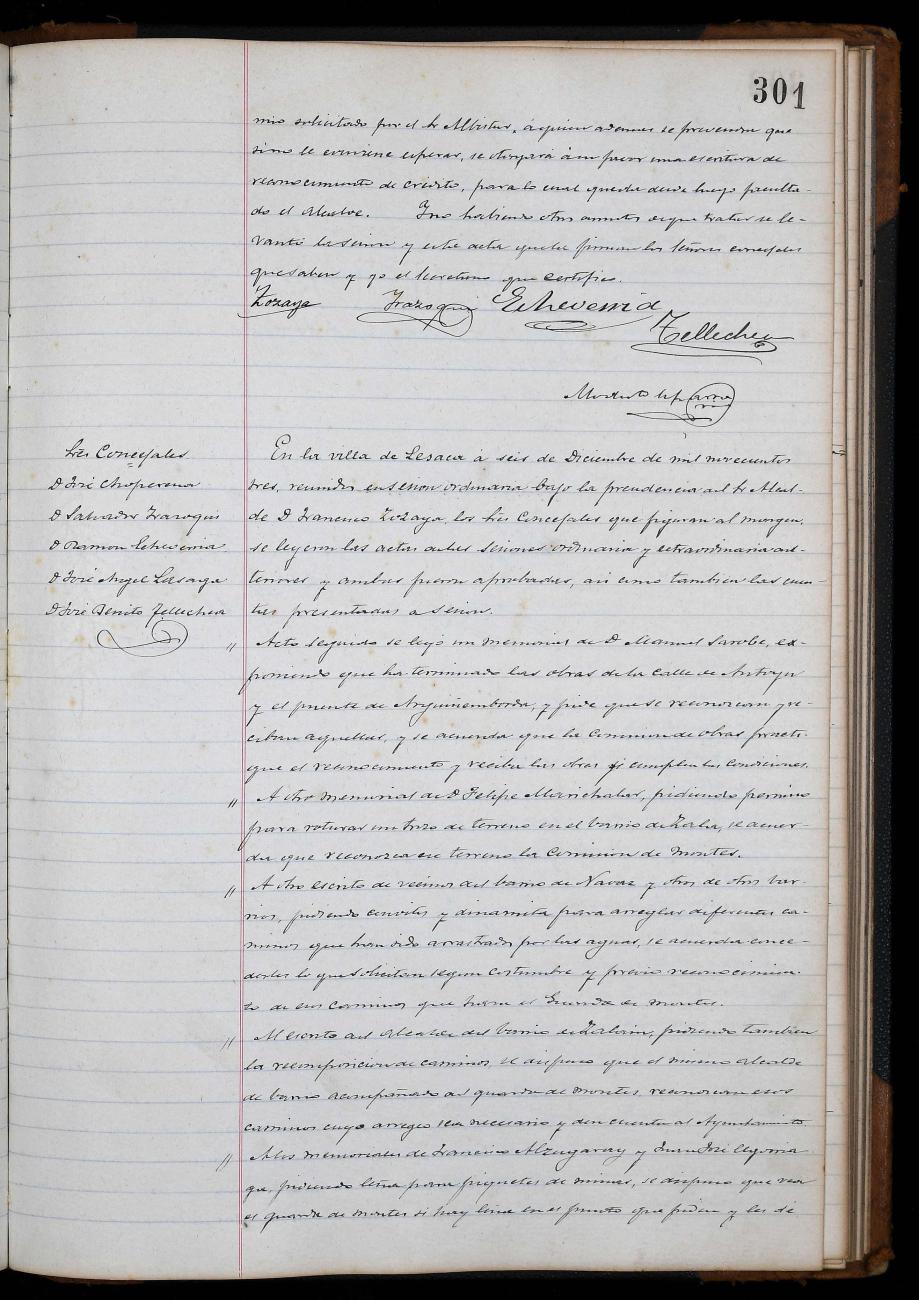 301
mio solicitado por el Sr Albistur, á quien ademas se prevendra que
si no le conviene esperar, se otorgará á su favor una escritura de
reconocimiento de credito, para lo cual queda desde luego faculta-
do el Alcalde. Y no habiendo otros asuntos de que tratar se le-
vantó la sesion y esta acta que la firman los Señores concejales
que saben y yo el Secretario que certifico.
Zozaya Irazoqui Echeverria
Tellechea
Modesto
Sres Concejales
D José Choperena
D Salvador Irazoqui
D Ramon Echeverria
D José Angel Lasaga
D José Benito Tellechea
En la villa de Lesaca á seis de Diciembre de mil novecientos
tres, reunidos en sesion ordinaria bajo la presidencia del Sr Alcal-
de D Francisco Zozaya, los Sres Concejales que figuran al margen,
se leyeron las actas de las sesiones ordinaria y extraordinaria an-
teriores y ambas fueron aprobadas, asi como tambien las cuen-
tas presentadas a sesion.
" Acto seguido se leyó un memorial de D Manuel Sarobe, ex-
poniendo que ha terminado las obras de la calle de Antoyu
y el puente de Arguiñemborda, y pide que se reconozcan y re-
ciban aquellas, y se acuerda que la Comision de obras practi-
que el reconocimiento y reciba las obras si cumplen las condiciones.
" A otro memorial de D Felipe Marichalar, pidiendo permiso
para roturar un trozo de terreno en el barrio de Zala, se acuer-
da que reconozca ese terreno la Comision de montes.
" A otro escrito de vecinos del barrio de Navaz y otros de otros bar-
rios, pidiendo convites y dinamita para arreglar diferentes ca-
minos que han sido arrastrados por las aguas, se acuerda conce-
derles lo que solicitan segun costumbre y previo reconocimien-
to de sus caminos que hara el Guarda de montes.
" Al escrito del Alcalde del barrio de Zalain, pidiendo tambien
la recomposicion de caminos, se dispuso que el mismo alcalde
de barrio acompañado del guarda de montes, reconozcan esos
caminos cuyo arreglo sea necesario y den cuenta al Ayuntamiento
" A los memoriales de Francisco Alzugaray y Juan José
pidiendo leña para piquetes de minas, se dispuso que vea
el guarda de montes si hay leña en el punto que piden y les dé